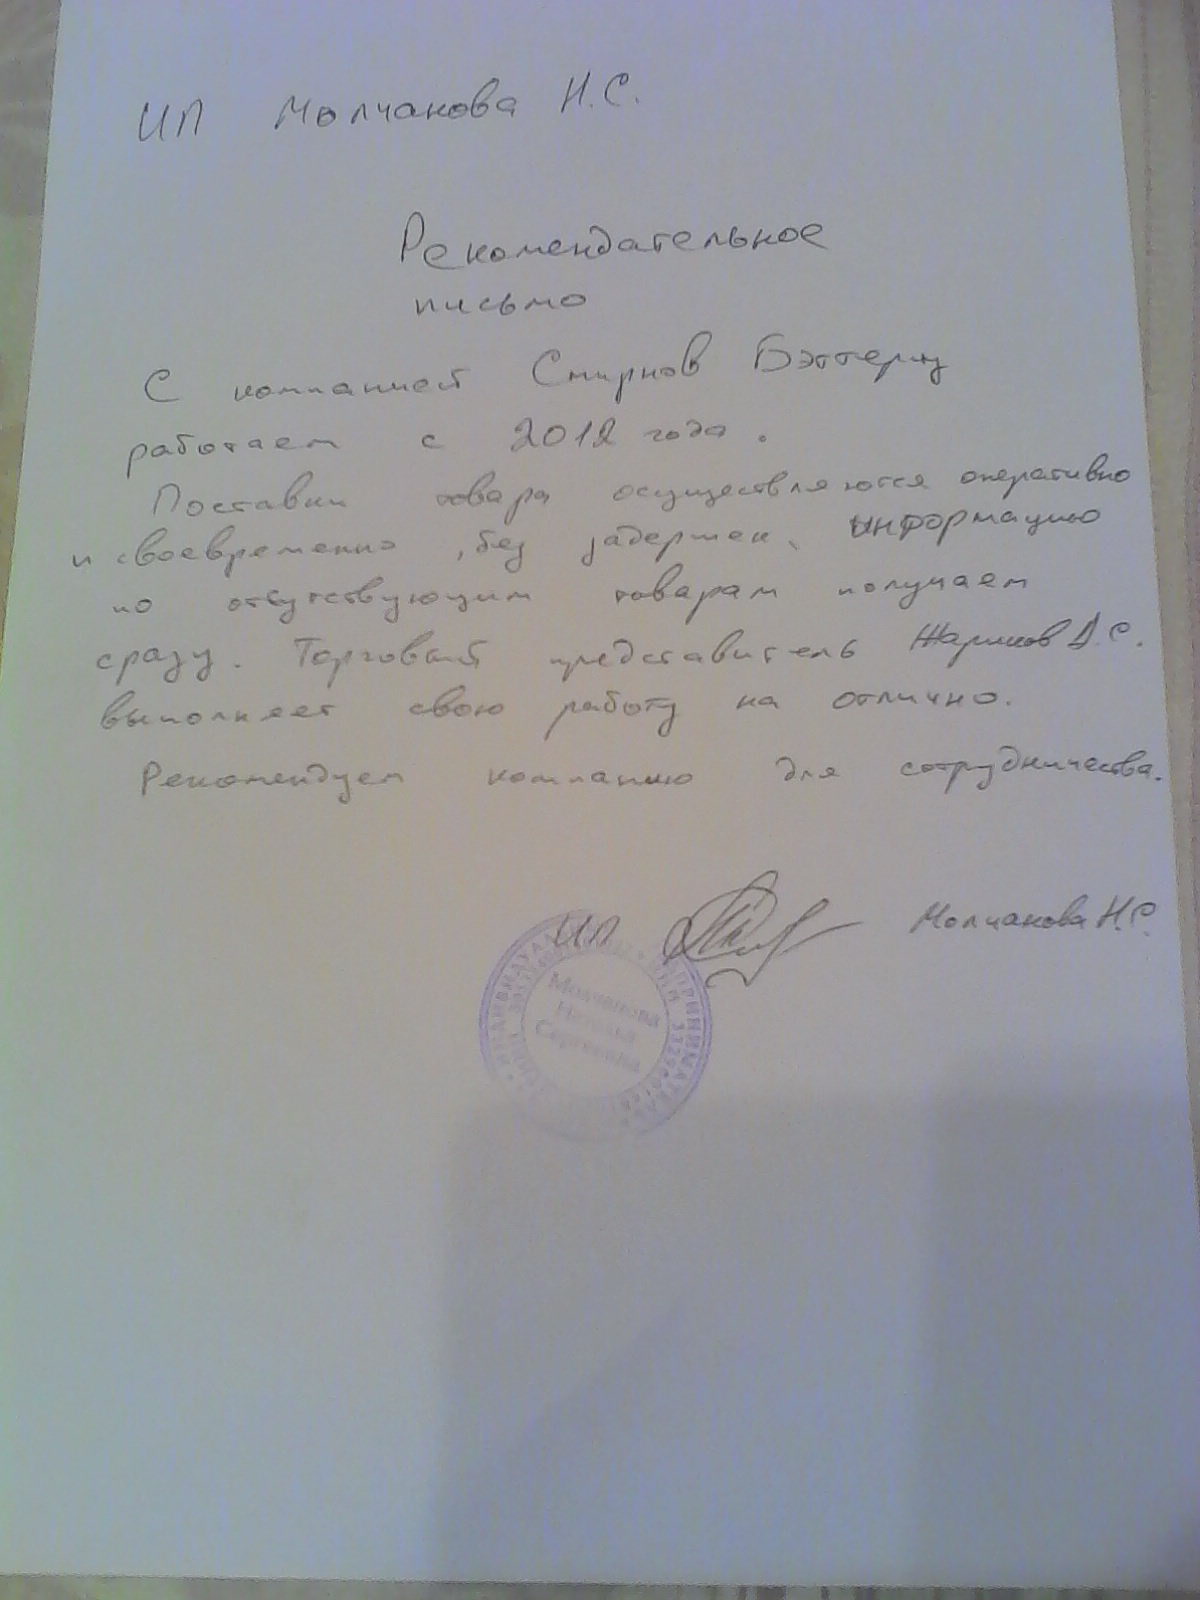 ИП Молчанова Н.С.
Рекомендательное
письмо
С компанией Смирнов Бэттериз
работаем с 2012 года.
Поставки товара осуществляются оперативно
и своевременно, без задержек, информацию
по отсутствующим товарам получаем
сразу. Торговый представитель Жариков Д.С.
выполняет свою работу на отлично.
Рекомендуем компанию для сотрудничества.
ИП Молчанова Н.С.
Молчанова
Наталья
Сергеевна